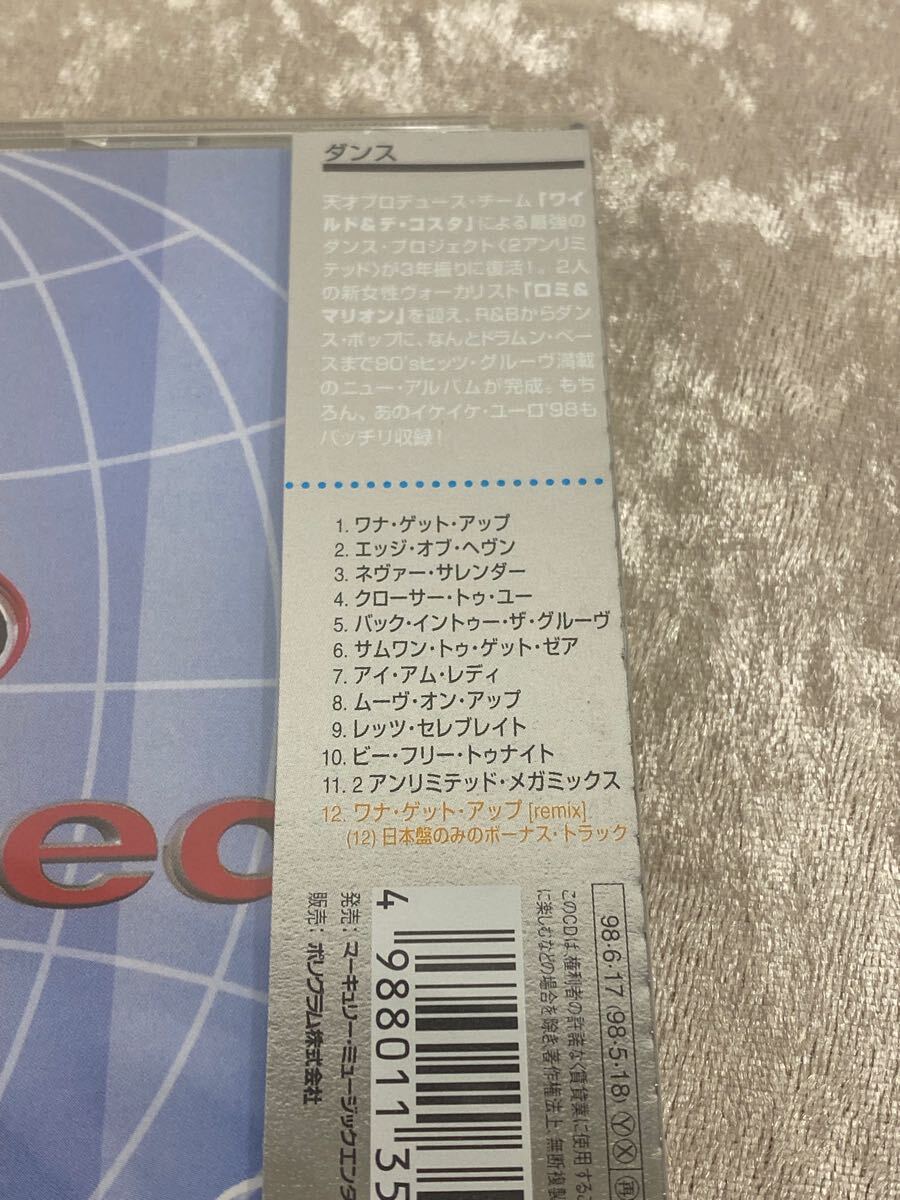 ダンス
天才プロデュース・チーム「ワイ
ルド&デ・コスタ」による最強の
ダンス・プロジェクト〈2アンリミ
テッド〉が3年振りに復活!。2人
の新女性ヴォーカリスト「ロミ&
マリオン」を迎え、R&Bからダン
ス・ポップに、なんとドラムン・ベー
スまで90'sヒッツ・グルーヴ満載
のニュー・アルバムが完成。もち
ろん、あのイケイケ・ユーロ'98も
バッチリ収録!
1. ワナ・ゲット・アップ
2. エッジ・オブ・ヘヴン
3. ネヴァー・サレンダー
4. クローサー・トゥ・ユー
5. バック・イントゥー・ザ・グルーヴ
6. サムワン・トゥ・ゲット・ゼア
7. アイ・アム・レディ
8. ムーヴ・オン・アップ
9. レッツ・セレブレイト
10. ビー・フリー・トゥナイト
11. 2 アンリミテッド・メガミックス
12. ワナ・ゲット・アップ [remix]
(12) 日本盤のみのボーナス・トラック
ed
98・6・17 (98・5・18) Ⓨ Ⓧ 再
このCDは、権利者の許諾なく賃貸業に使用する
に楽しむなどの場合を除き著作権法上、無断複製
4 988011 35
発売:マーキュリー・ミュージックエンタ
販売:ポリグラム株式会社